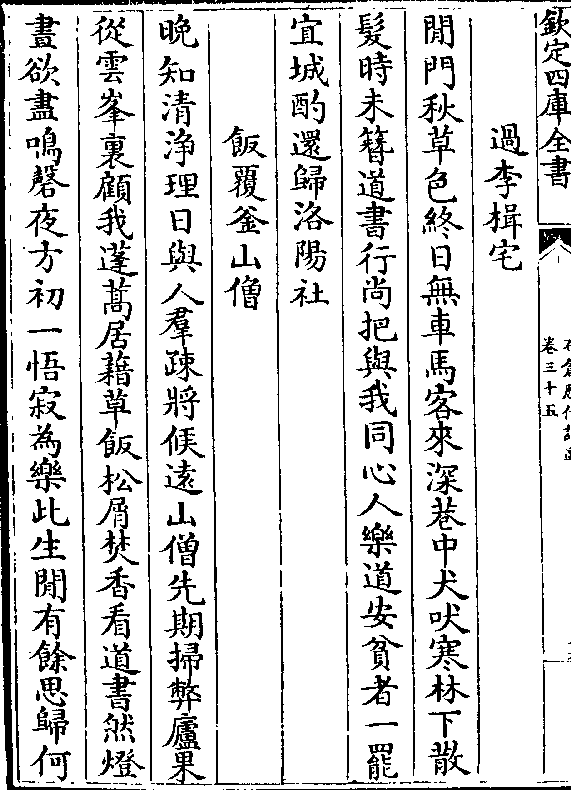 欽定四庫全書
卷三十五
過李揖宅
閒門秋草色終日無車馬客來深巷中犬吠寒林下散
髮時未簪道書行尚把與我同心人樂道安貧者一罷
宜城酌還歸洛陽社
飯覆釜山僧
晚知清淨理日與人羣疎將候遠山僧先期掃弊廬果
從雲峯裏顧我蓬蒿居藉草飯松屑焚香看道書然燈
晝欲盡鳴磬夜方初一悟寂為樂此生閒有餘思歸何